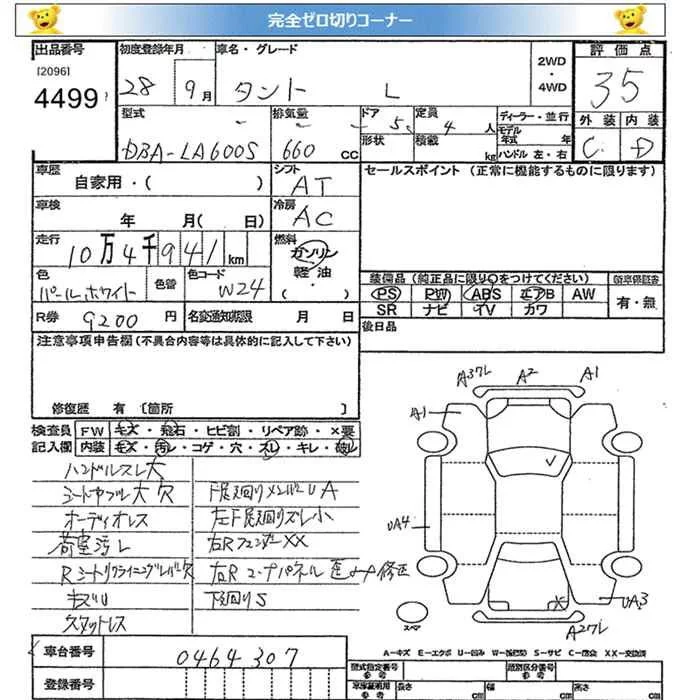 完全ゼロ切りコーナー
出品番号
[2096]
4499
初度登録年月
28 9月
車名・グレード
タント L
2WD
・
4WD
評価点
35
外装 内装
C D
型式
DBA-LA600S
排気量
660 cc
ドア 5
形状
定員 4 人
積載 kg
ディーラー・並行
モデル年式 年
ハンドル 左・右
車歴
自家用・( )
シフト
AT
車検
年 月( 日)
冷房
AC
走行
10万4千941km
燃料
ガソリン
軽油
・( )
色
パールホワイト
色替
色コード
W24
R券 9200 円
名変通知期限 月 日
セールスポイント (正常に機能するものに限ります)
装備品 (純正品に限り○をつけてください)
PS PW ABS エアB AW
SR ナビ TV カワ
新車保証書
有・無
後日品
注意事項申告欄 (不具合内容等は具体的に記入して下さい)
修復歴 有 〔箇所 〕
検査員記入欄
FW キズ・飛石・ヒビ割・リペア跡・×要
内装 キズ・汚レ・コゲ・穴・スレ・キレ・破レ
ハンドルスレ大
オーディオレス
荷室汚レ
Rシートリクライニングレバー欠
キズU
スタットレス
下廻りメンバーUA
左F足廻りズレ小
右RフェンダーXX
右Rコーナーパネル 修正
下廻りS
A37L A2 A1
A1
UA4
UA3
A27L
スペア
A−キズ E−エクボ U−凹み W−板金跡 S−サビ C−腐食 XX−交換済
車台番号
0464307
登録番号
型式指定番号
参考
類別区分番号
参考
車庫証明用
参考
長さ cm
幅 cm
高さ cm